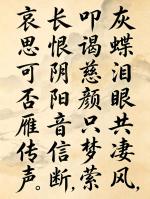 灰蝶泪眼共凄风，
叩谒慈颜只梦萦
长恨阴阳音信断，
哀思可否雁传声。